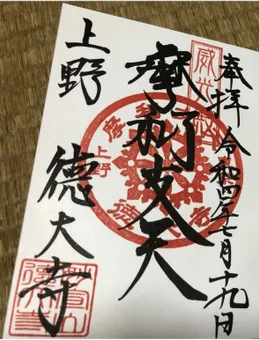 奉拝 令和四年七月十九日
摩利支天
上野 徳大寺
上野